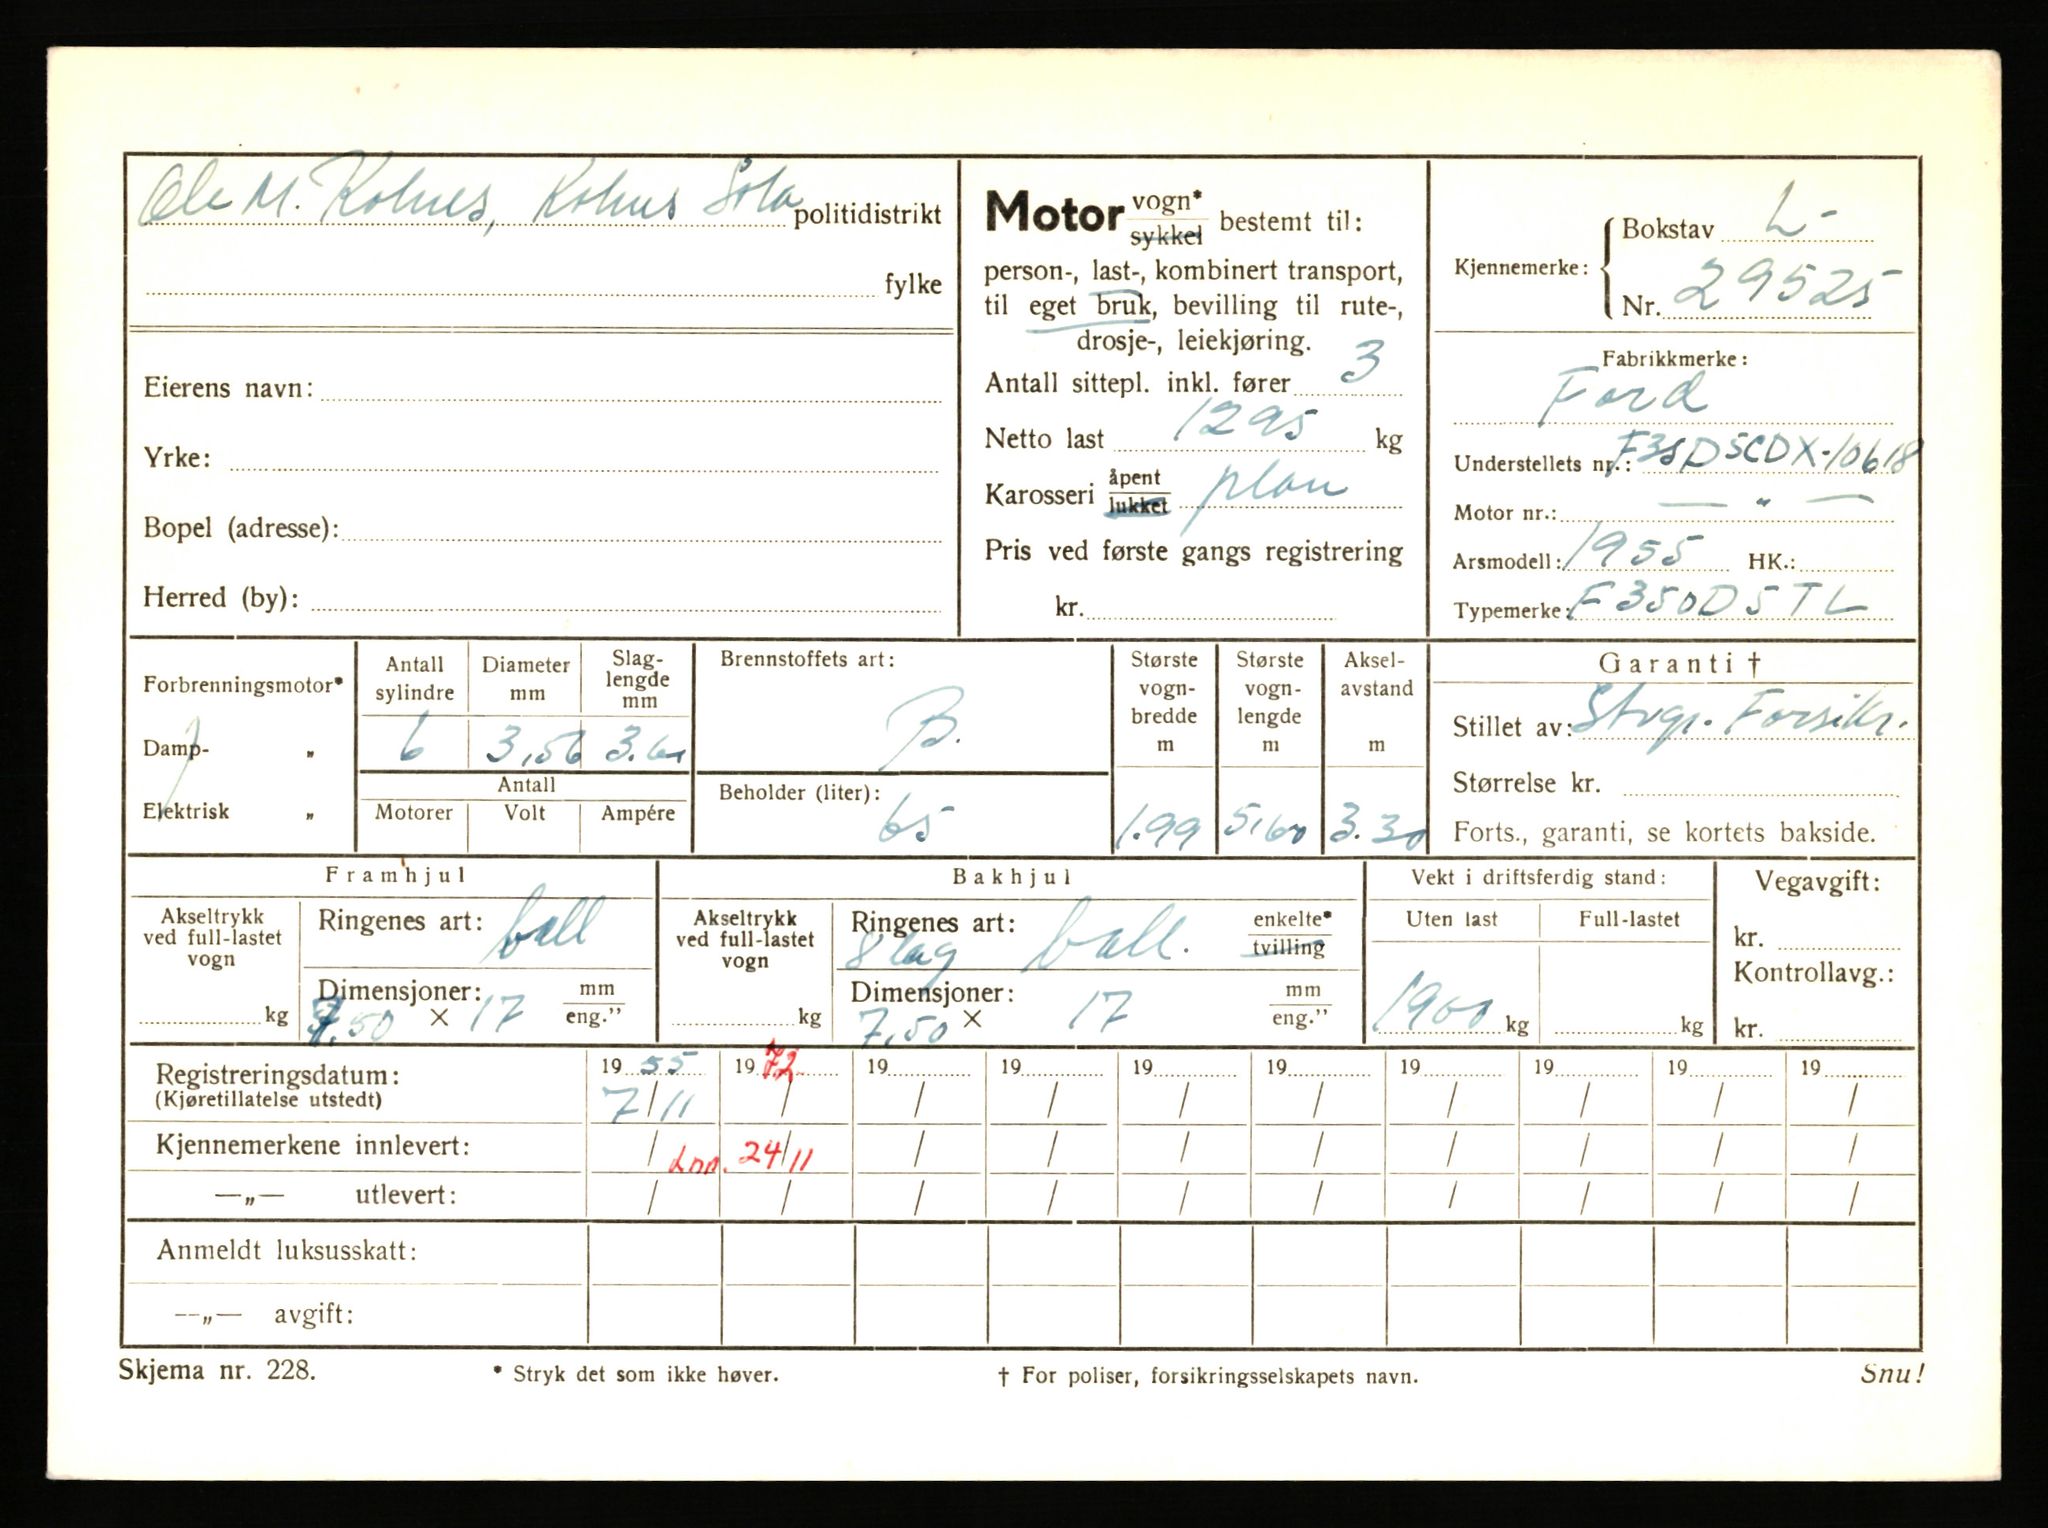 Ole M. Kolnes, Kolnes Sola politidistrikt
fylke
Eierens navn:
Yrke:
Bopel (adresse):
Herred (by):
Motor vogn* sykkel bestemt til:
person-, last-, kombinert transport,
til eget bruk, bevilling til rute-,
drosje-, leiekjøring.
Antall sittepl. inkl. fører 3
Netto last 1295 kg
Karosseri åpent lukket plan
Pris ved første gangs registrering
kr.
Kjennemerke: Bokstav L-
Nr. 29525
Fabrikkmerke:
Ford
Understellets nr.: F35D5CDX-10618
Motor nr.: — " —
Arsmodell: 1955 HK.:
Typemerke: F350D5TL
Forbrenningsmotor*
Damp- „
Elektrisk „
Antall sylindre 6
Diameter mm 3,56
Slag-lengde mm 3.60
Antall
Motorer Volt Ampére
Brennstoffets art:
B.
Beholder (liter):
65
Største vogn-bredde m 1.99
Største vogn-lengde m 5,60
Aksel-avstand m 3.30
Garanti †
Stillet av: Stvgr. Forsikr.
Størrelse kr.
Forts., garanti, se kortets bakside.
Framhjul
Akseltrykk ved full-lastet vogn
kg
Ringenes art: ball
Dimensjoner: 7,50 × 17 mm eng."
Bakhjul
Akseltrykk ved full-lastet vogn
kg
Ringenes art: 8 lag ball. enkelte* tvilling
Dimensjoner: 7,50 × 17 mm eng."
Vekt i driftsferdig stand:
Uten last Full-lastet
1900 kg kg
Vegavgift:
kr.
Kontrollavg.:
kr.
Registreringsdatum: 19 55 19 72 19 19 19 19 19 19 19 19
(Kjøretillatelse utstedt) 7/11 / / / / / / / / /
Kjennemerkene innlevert: / 24/11 / / / / / / / /
—„— utlevert: / / / / / / / / / /
Anmeldt luksusskatt:
—„— avgift:
Skjema nr. 228. * Stryk det som ikke høver. † For poliser, forsikringsselskapets navn. Snu!